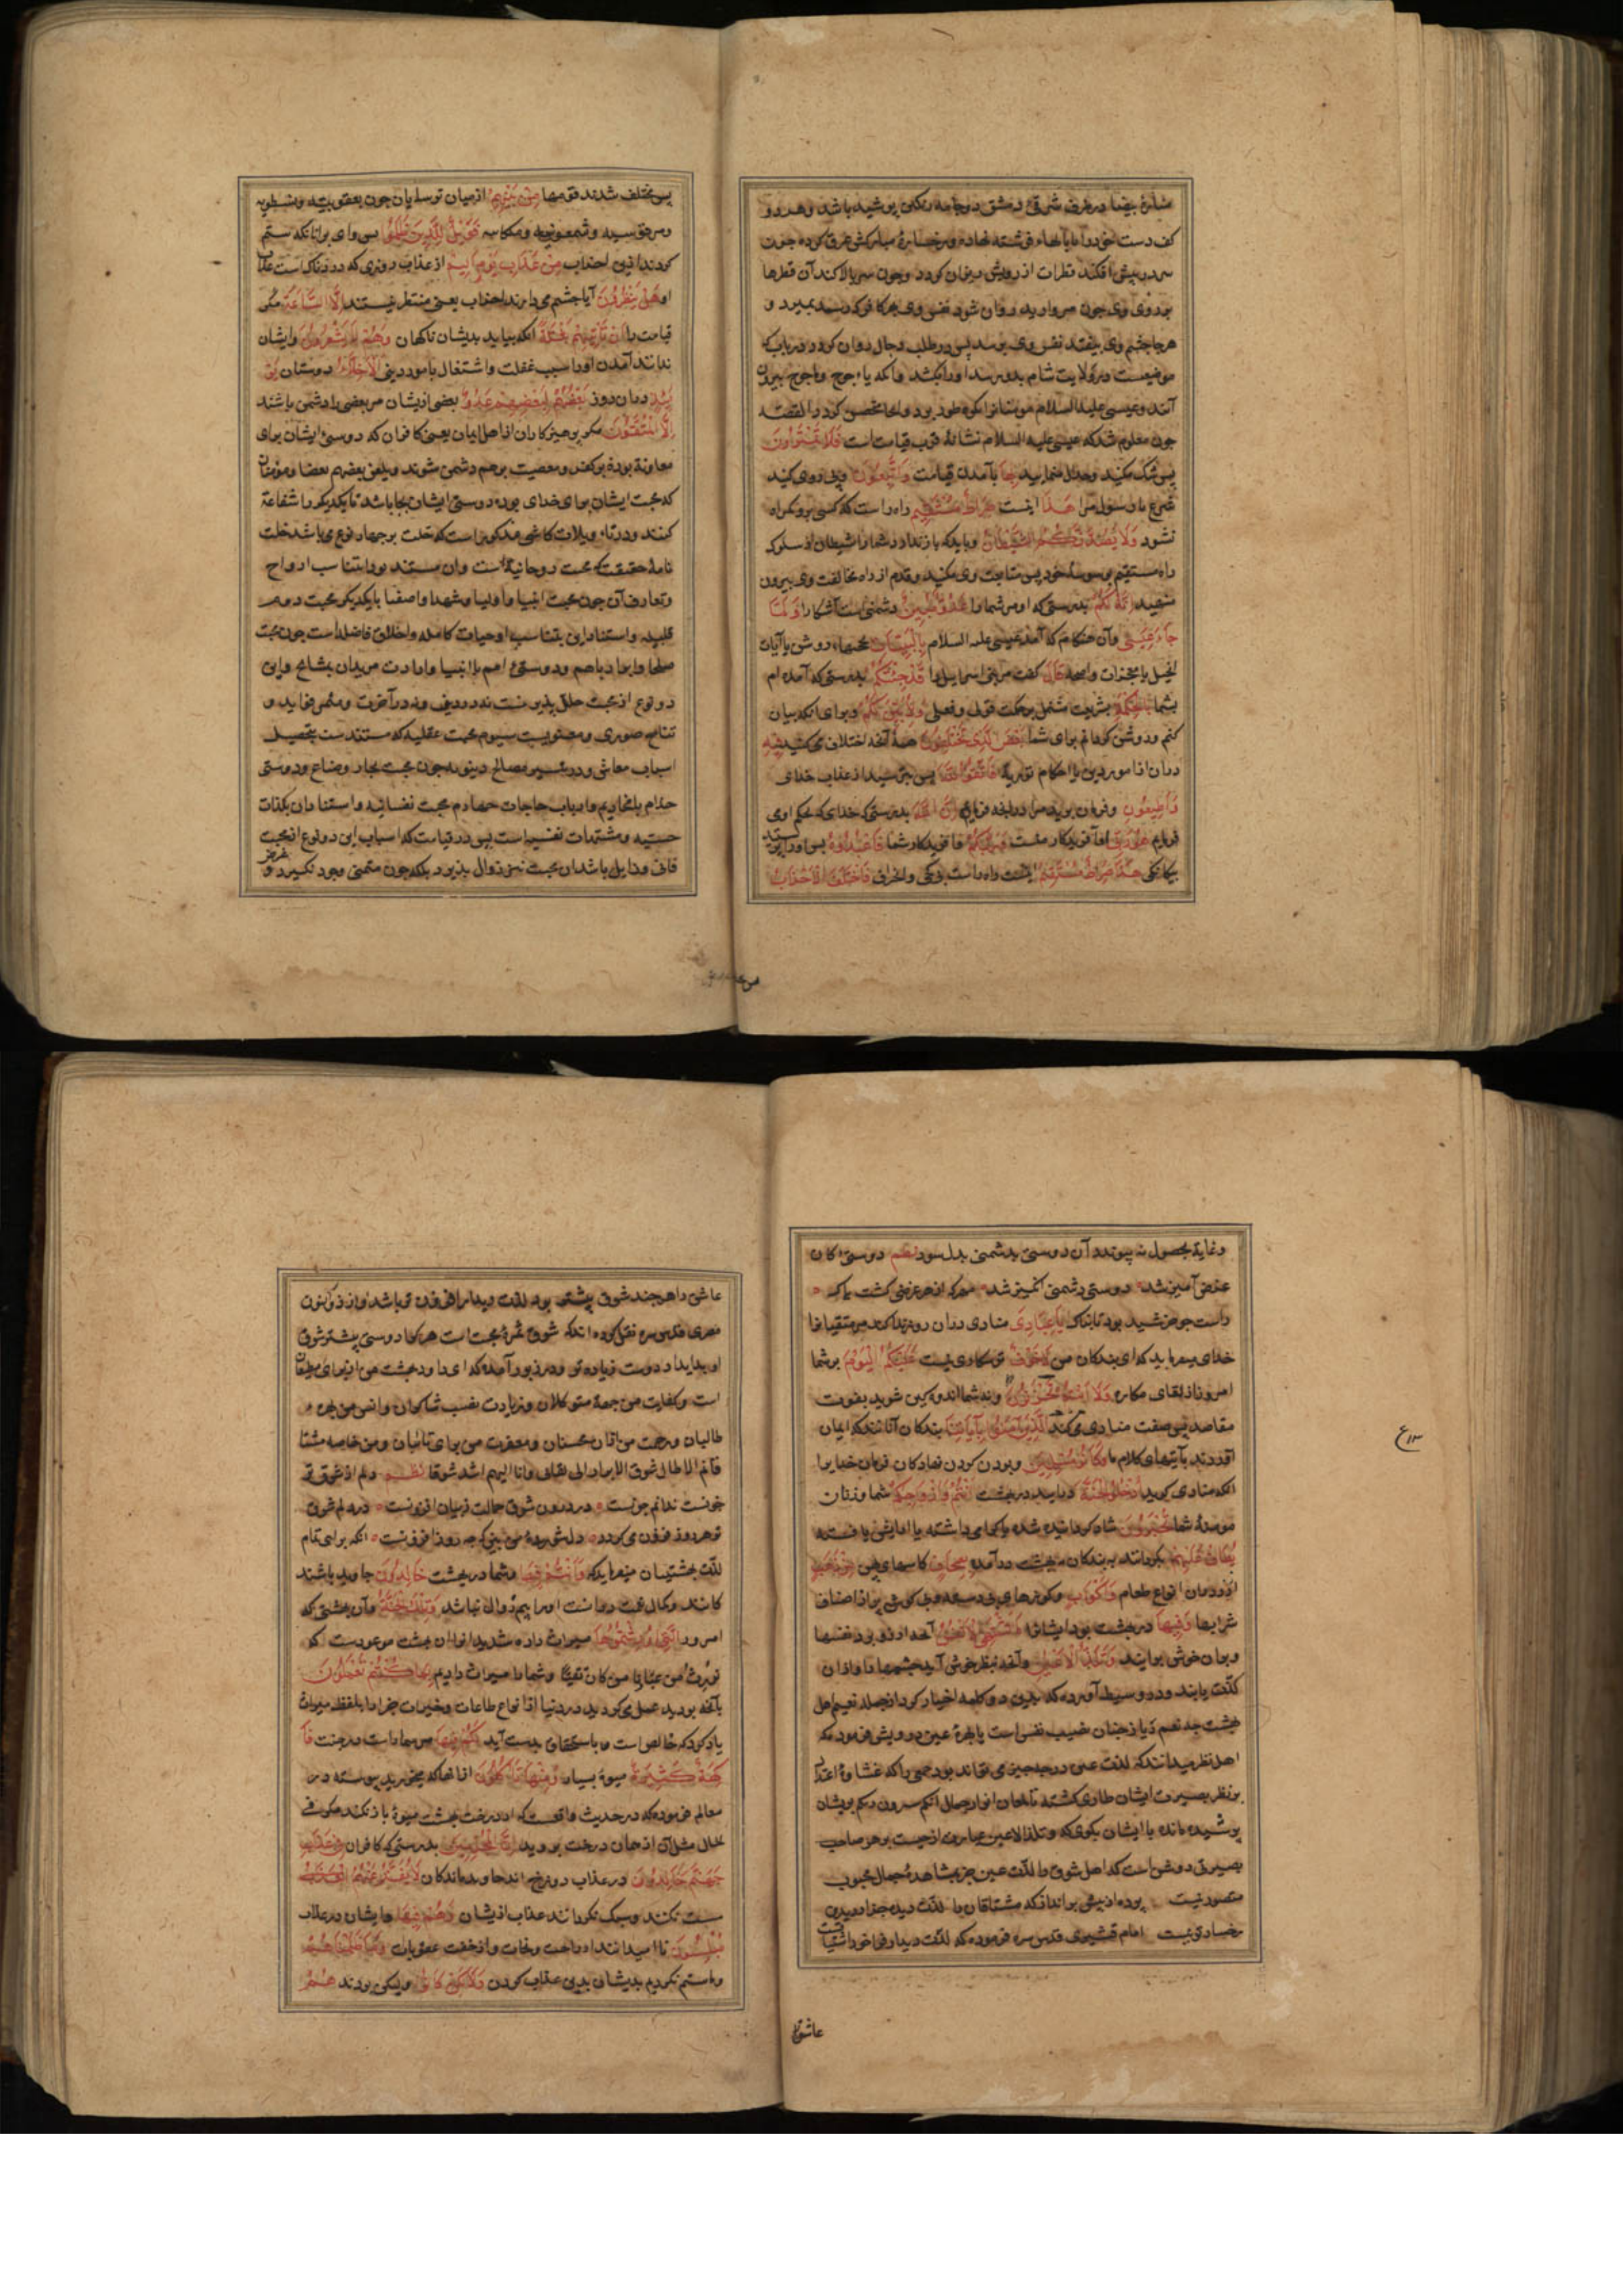 منارهٔ بیضا در طرف شرقی دمشق دو جامه رنگین پوشیده باشد و هر دو
کف دست خود را بر بالهاء فرشته نهاده و رخسارهٔ مبارکش عرق کرده چون
سر در پیش افکند قطرات از رویش ریزان کردد و چون سر بالا کند آن قطرها
بر روی وی چون مروارید روان شود نفس وی بهر کافر که رسد بمیرد و
هر جا چشم وی بیفتد نفس وی برسد پس در طلب دجال روان کردد و در باب که
موضعیست در ولایت شام بدو رسد او را بکشد وانکه یاجوج وماجوج بیرون
آیند وعیسی علیه السلام مومنانرا بکوه طور برد وانجا متحصن کردد القصه
چون معلوم شد که عیسی علیه السلام نشانهٔ قرب قیامت است فَلَا تَمْتَرُونَ
پس شک مکنید وجدال منمایید بِهَا بآمدن قیامت وَاتَّبِعُونِ وپی روی کنید
شرع یا رسول مرا هَذَا اینست صِرَاطٌ مُسْتَقِيمٌ راه راست که کسی برو کمراه
نشود وَلَا يَصُدَّنَّكُمُ الشَّيْطَانُ وباید که باز ندارد شما را شیطان از سلوک
راه مستقیم بوسوسهٔ خود پس متابعت وی مکنید وقدم از راه مخالفت وی بیرون
منهید إِنَّهُ لَكُمْ بدرستی که او مر شما را عَدُوٌّ مُبِينٌ دشمنی است آشکارا وَلَمَّا
جَاءَ عِيسَى وآن هنکام که آمد عیسی علیه السلام بِالْبَيِّنَاتِ بحجتهاء روشن یا آیات
انجیل یا معجزات واضحه قَالَ کفت مر بنی اسرایل را قَدْ جِئْتُكُمْ بدرستی که آمده ام
بشما بِالْحِكْمَةِ بشریعت مشتمل بر حکمت قولی وفعلی وَلِأُبَيِّنَ لَكُمْ وبرای انکه بیان
کنم وروشن کردانم برای شما بَعْضَ الَّذِي تَخْتَلِفُونَ همهٔ آنچه اختلاف می کنید فِيهِ
دران از امور دین یا احکام توریة فَاتَّقُوا اللَّهَ پس بترسید از عذاب خدای
وَأَطِيعُونِ وفرمان برید مرا در انچه فرمایم إِنَّ اللَّهَ بدرستی که خدای که بحکم اوی
فرمایم هُوَ رَبِّي او آفریدکار منست وَرَبُّكُمْ وآفریدکار شما فَاعْبُدُوهُ پس او را پرستید
بیکانکی هَذَا صِرَاطٌ مُسْتَقِيمٌ اینست راه راست بی کجی وانحراف فَاخْتَلَفَ الْأَحْزَابُ
پس مختلف شدند فرقها مِنْ بَيْنِهِمْ از میان ترسایان چون یعقوبیه ونسطوریه
ومرقوسیه وشمعونیه وملکاییه فَوَيْلٌ لِلَّذِينَ ظَلَمُوا پس وای برانانکه ستم
کردند ازین احزاب مِنْ عَذَابِ يَوْمٍ أَلِيمٍ از عذاب روزی که دردناک است عذاب
او هَلْ يَنْظُرُونَ آیا چشم می دارند احزاب یعنی منتظر نیستند إِلَّا السَّاعَةَ مکر
قیامت را أَنْ تَأْتِيَهُمْ بَغْتَةً انکه بیاید بدیشان ناکهان وَهُمْ لَا يَشْعُرُونَ وایشان
ندانند آمدن او را بسبب غفلت واشتغال بامور دنیی الْأَخِلَّاءُ دوستان يَوْمَ
ئِذٍ دران روز بَعْضُهُمْ لِبَعْضٍ عَدُوٌّ بعضی ازیشان مر بعضی را دشمن باشند
إِلَّا الْمُتَّقِينَ مکر پرهیزکاران از اهل ایمان یعنی کافران که دوستی ایشان برای
معاونة بوده بر کفر ومعصیت بر هم دشمن شوند ویلعن بعضهم بعضا ومومنان
که محبت ایشان برای خدای بوده دوستی ایشان بجا باشد تا یکدیکر را شفاعة
کنند ودر تاویلات کاشی مذکور است که خلت بر چهار نوع می باشد خلت
تامهٔ حقیقت که محبت روحانیهٔ است وان مستند بود بتناسب ارواح
وتعارف آن چون محبت انبیا واولیا وشهدا واصفیا با یکدیکر محبت دوم
قلبیه واستناد این بتناسب اوصاف کامله واخلاق فاضله است چون محبت
صلحا وابرار با هم ودوستی امم با انبیا وارادت مریدان بمشایخ واین
دو نوع از محبت خلل پذیر نیست نه در دنیی ونه در آخرت ومثمر فواید و
نتایج صوری ومعنویست سیوم محبت عقلیه که مستندست بتحصیل
اسباب معاش وتیسیر مصالح دینویه چون محبت تجار وصناع ودوستی
خدام با مخادیم وارباب حاجات چهارم محبت نفسانیه واستناد ان بلذات
حسیه ومشتهیات نفسیه است پس در قیامت که اسباب این دو نوع از محبت
فانی وزایل باشد ان محبت نیز زوال پذیرد بلکه چون متمنی وجود نکیرد وغرض
وغایة بحصول نه پیوندد آن دوستی بدشمنی بدل شود نظم دوستی کان
غرض آمیز شد دوستی دشمنی انکیز شد مهر که از هر غرضی کشت پاک
راست چو خورشید بود تابناک يَا عِبَادِي منادی دران روز ندا کند مر متقیانرا
خدای بفرماید که ای بندکان من لَا خَوْفٌ ترسکاری نیست عَلَيْكُمُ الْيَوْمَ بر شما
امروز از لقای مکاره وَلَا أَنْتُمْ تَحْزَنُونَ ونه شما اندوهکین شوید بفوت
مقاصد پس صفت منادی می کند الَّذِينَ آمَنُوا بِآيَاتِنَا بندکان آنانند که ایمان
آوردند بآیتهای کلام ما وَكَانُوا مُسْلِمِينَ وبودن کردن نهادکان فرمان خدایرا
انکه منادی کوید ادْخُلُوا الْجَنَّةَ درایید در بهشت أَنْتُمْ وَأَزْوَاجُكُمْ شما وزنان
مومنهٔ شما تُحْبَرُونَ شاد کردانیده شده یا کرامی داشته یا ارایش یافته
يُطَافُ عَلَيْهِمْ بکردانند بر بندکان ببهشت درآمده بِصِحَافٍ کاسهای پهن مِنْ ذَهَبٍ
از زر دران انواع طعام وَأَكْوَابٍ وکوزهای بی دسته وبی کوشه پر از اصناف
شرابها وَفِيهَا در بهشت بود ایشانرا مَا تَشْتَهِي الْأَنْفُسُ آنچه ارزو برد نفسها
وبدان خوش برایند وَتَلَذُّ الْأَعْيُنُ وآنچه بنظر خوش آید چشمها را وازان
لذت یابند ودر وسیط آورده که بدین دو کلمه اخبار کرد از جمله نعیم اهل
بهشت چه نعیم ریاض جنان نصیب نفس است یا بهرهٔ عین درویشی فرمود که
اهل نظر میدانند که لذت عین در چه چیز می تواند بود جمعی را که غشاوهٔ اعتزال
بر نظر بصیرت ایشان طاری کشته تا لمعان انوار جمال انکم سترون ربکم بریشان
پوشیده مانده با ایشان بکوی که وتلذ الاعین عبارت از چیست بر هر صاحب
بصیرتی روشن است که اهل شوق را لذت عین جز بمشاهدهٔ جمال محبوب
متصور نیست پرده از پیش برانداز که مشتاقان را لذت دیده جز از دیدن
رخسار تو نیست امام قشیری قدس سره فرموده که لذت دیدار فراخور اشتیاقست
عاشق را هر چند شوق بیشتر بود لذت دیدار افزون تر باشد واز ذوالنون
مصری قدس سره نقل کرده اند که شوق ثمرهٔ محبت است هر کرا دوستی بیشتر شوق
او بدیدار دوست زیاده تر ودر زبور آمده که ای داود بهشت من از برای مطیعان
است وکفایت من جهة متوکلان وزیادت نصیب شاکران وانس من بهره
طالبان ورحمت من ازان محسنان ومغفرت من برای تائبان ومن خاصه مشتا
قانم الا طال شوق الابرار الی لقائی وانا الیهم اشد شوقا نظم دلم از شوق تو
خونست ندانم چونست در درون شوق جمالت ز بیان افزونست در دلم شوق
تو هر روز فزون می کردد دل شوریدهٔ من بین که چه روز افزونست انکه برای تمام
لذت بهشتیان میفرماید که وَأَنْتُمْ فِيهَا وشما در بهشت خَالِدُونَ جاوید باشند
کانند وکمال نعمت در آنست او را بیم زوال نباشد وَتِلْكَ الْجَنَّةُ وآن بهشتی که
امروز الَّتِي أُورِثْتُمُوهَا میراث داده شدید انرا ان بهشت موعودست که
نُورِثُ مِنْ عِبَادِنَا مَنْ كَانَ تَقِيًّا وشما را میراث دادیم بِمَا كُنْتُمْ تَعْمَلُونَ
بآنچه بودید عمل می کردید در دنیا از انواع طاعات وخیرات جزا را بلفظ میراث
یاد کرد که خالص است وباستحقاق بدست آید لَكُمْ فِيهَا مر شما راست در جنت فَا
كِهَةٌ كَثِيرَةٌ میوهٔ بسیار مِنْهَا تَأْكُلُونَ ازانها که میخورید پیوسته در
معالم فرموده که در حدیث واقعست که از درخت بهشت میوهٔ باز نکنند مکر فی
الحال مثل آن از همان درخت بروید إِنَّ الْمُجْرِمِينَ بدرستی که کافران فِي عَذَابِ
جَهَنَّمَ خَالِدُونَ در عذاب دوزخ اند جاویدماندکان لَا يُفَتَّرُ عَنْهُمْ
سست نکنند وسبک نکردانند عذاب ازیشان وَهُمْ فِيهِ وایشان در عذاب
مُبْلِسُونَ نا امیدانند از راحت ونجات واز خفت عقوبات وَمَا ظَلَمْنَاهُمْ
وما ستم نکردیم بدیشان بدین عذاب کردن وَلَكِنْ كَانُوا ولیکن بودند هُمُ
عاشق